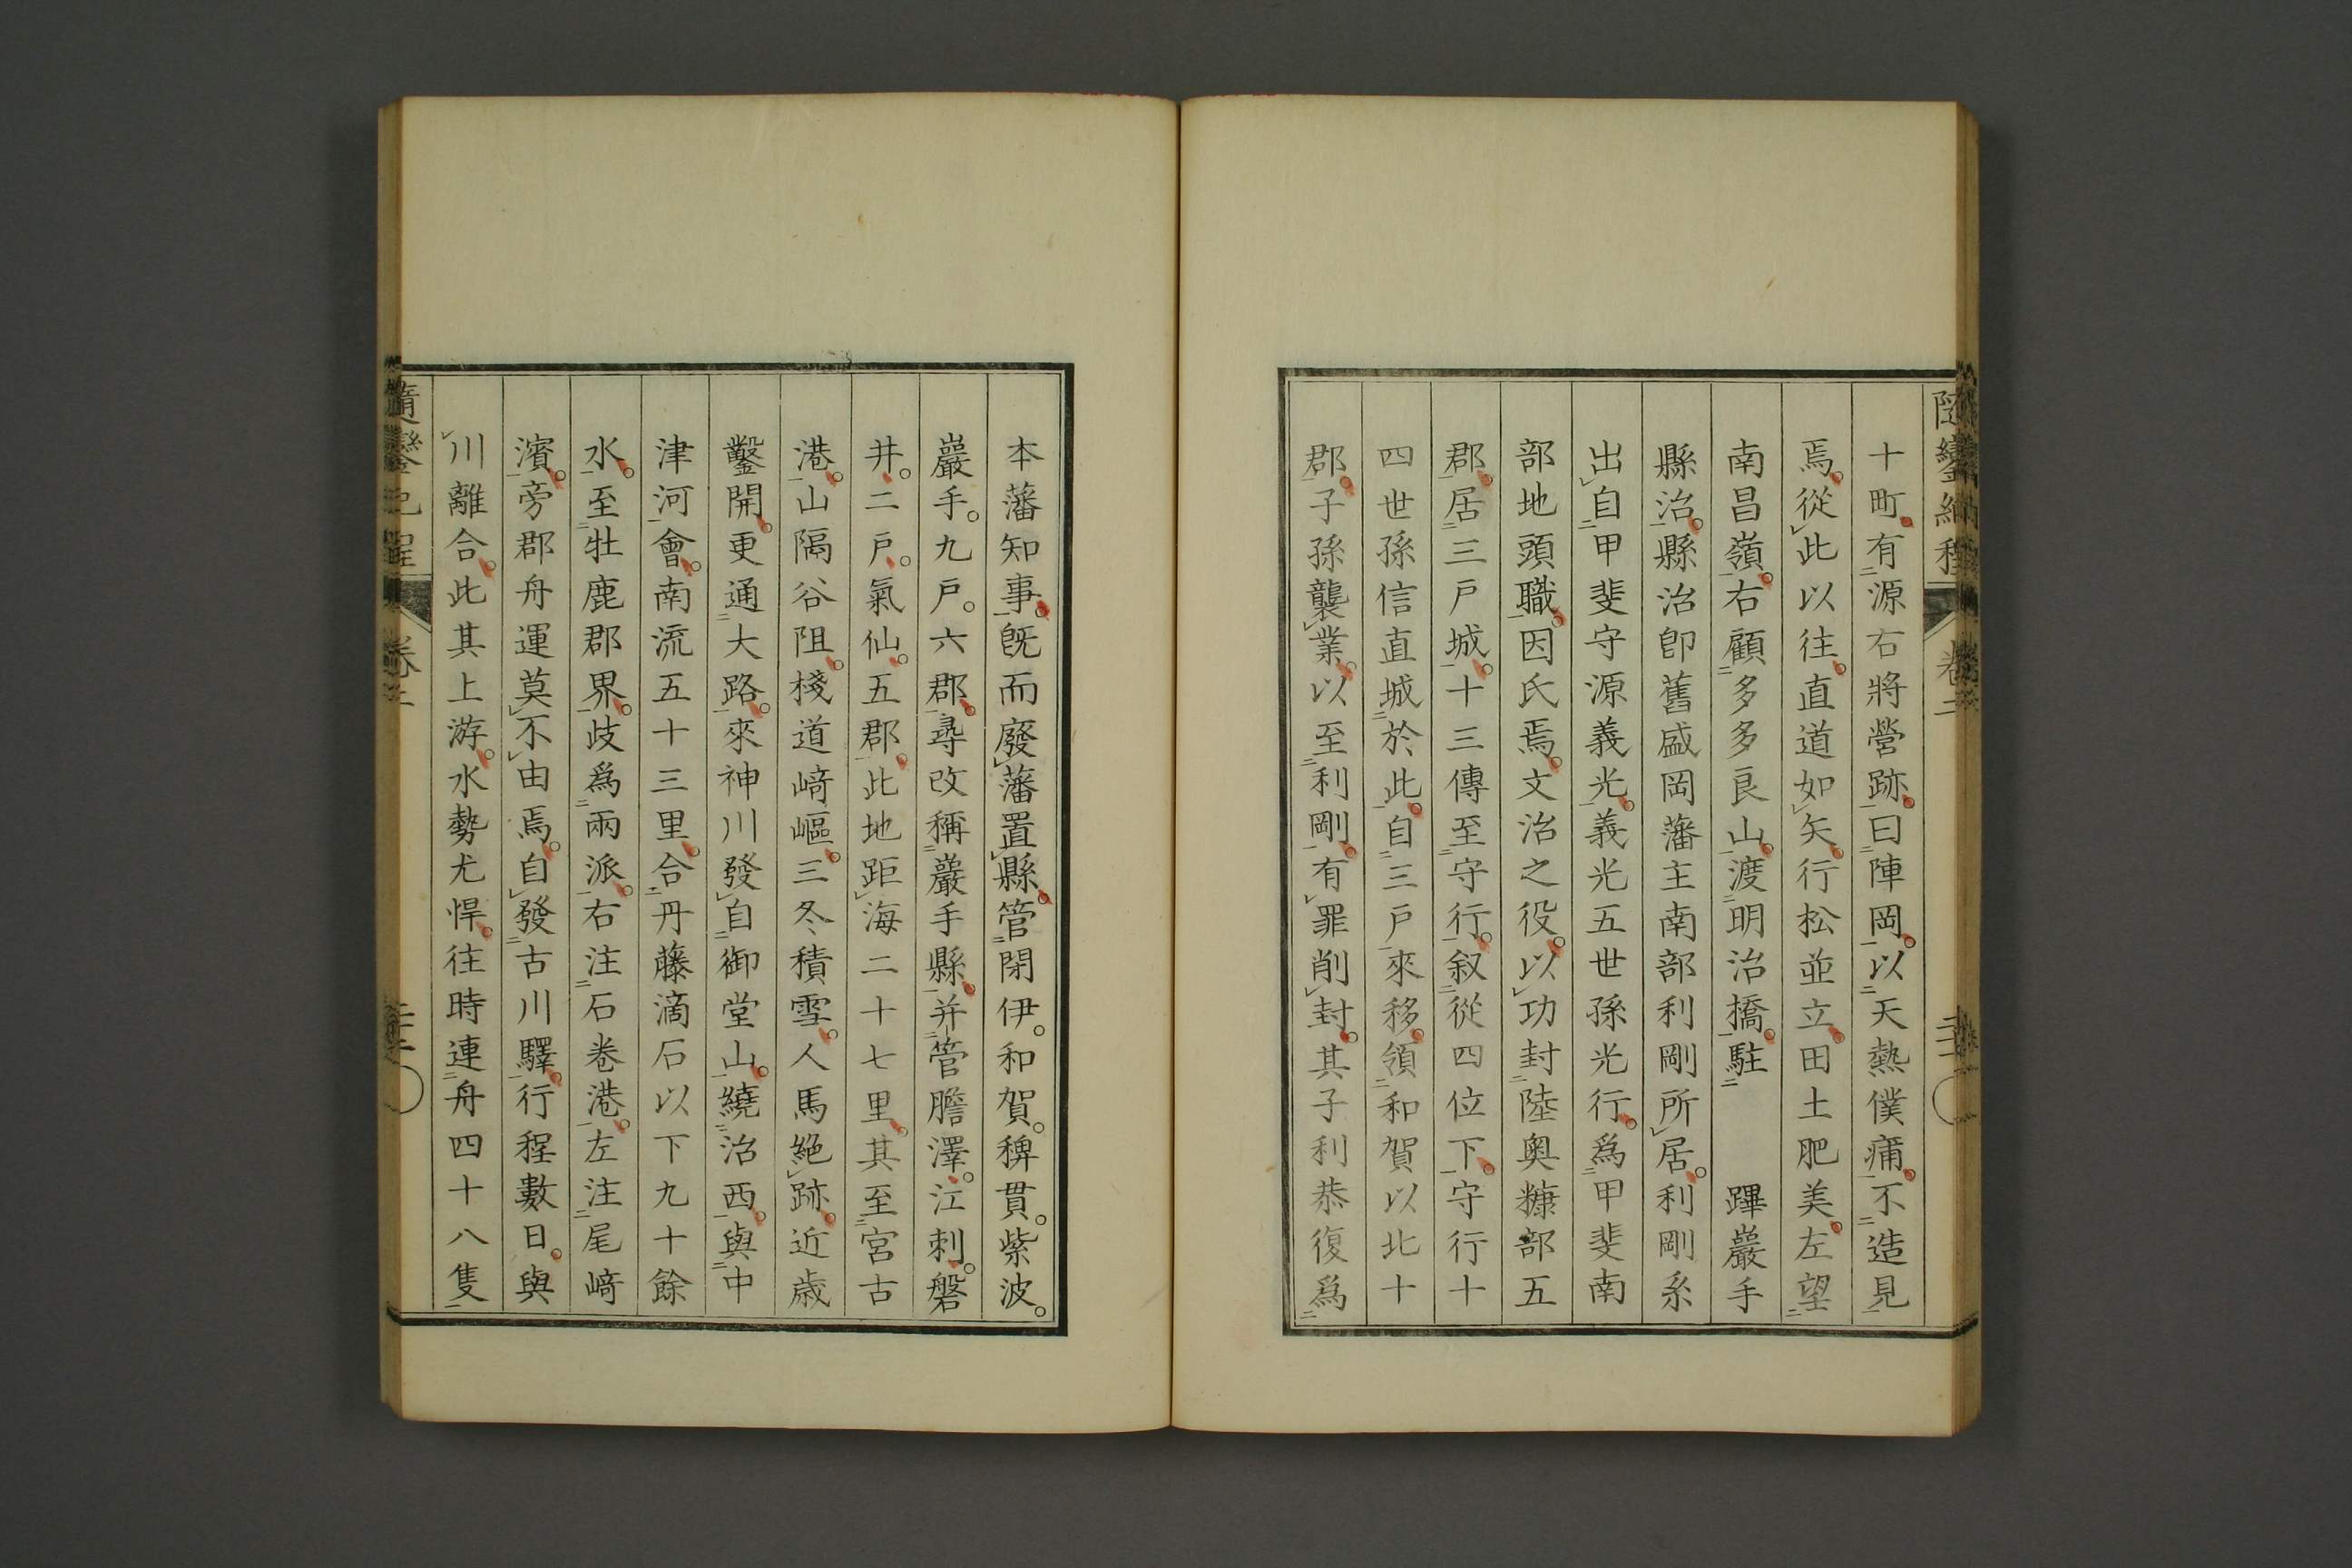 十町有源右將營跡曰陣岡以天熱僕痡不造見
焉從此以往直道如矢行松並立田土肥美左望
南昌嶺右顧多多良山渡明治橋駐　蹕巖手
縣治縣治卽舊盛岡藩主南部利剛所居利剛系
出自甲斐守源義光義光五世孫光行爲甲斐南
部地頭職因氏焉文治之役以功封陸奧糠部五
郡居三戶城十三傳至守行叙從四位下守行十
四世孫信直城於此自三戶來移領和賀以北十
郡子孫襲業以至利剛有罪削封其子利恭復爲
本藩知事旣而廢藩置縣管閉伊。和賀。稗貫。紫波。
巖手。九戶。六郡尋改稱巖手縣并管膽澤。江刺。磐
井。二戶。氣仙。五郡此地距海二十七里其至宮古
港山隔谷阻棧道崎嶇三冬積雪人馬絕跡近歲
鑿開更通大路來神川發自御堂山繞治西與中
津河會南流五十三里合丹藤滴石以下九十餘
水至牡鹿郡界歧爲兩派右注石卷港左注尾崎
濱旁郡舟運莫不由焉自發古川驛行程數日與
川離合此其上游水勢尤悍往時連舟四十八隻